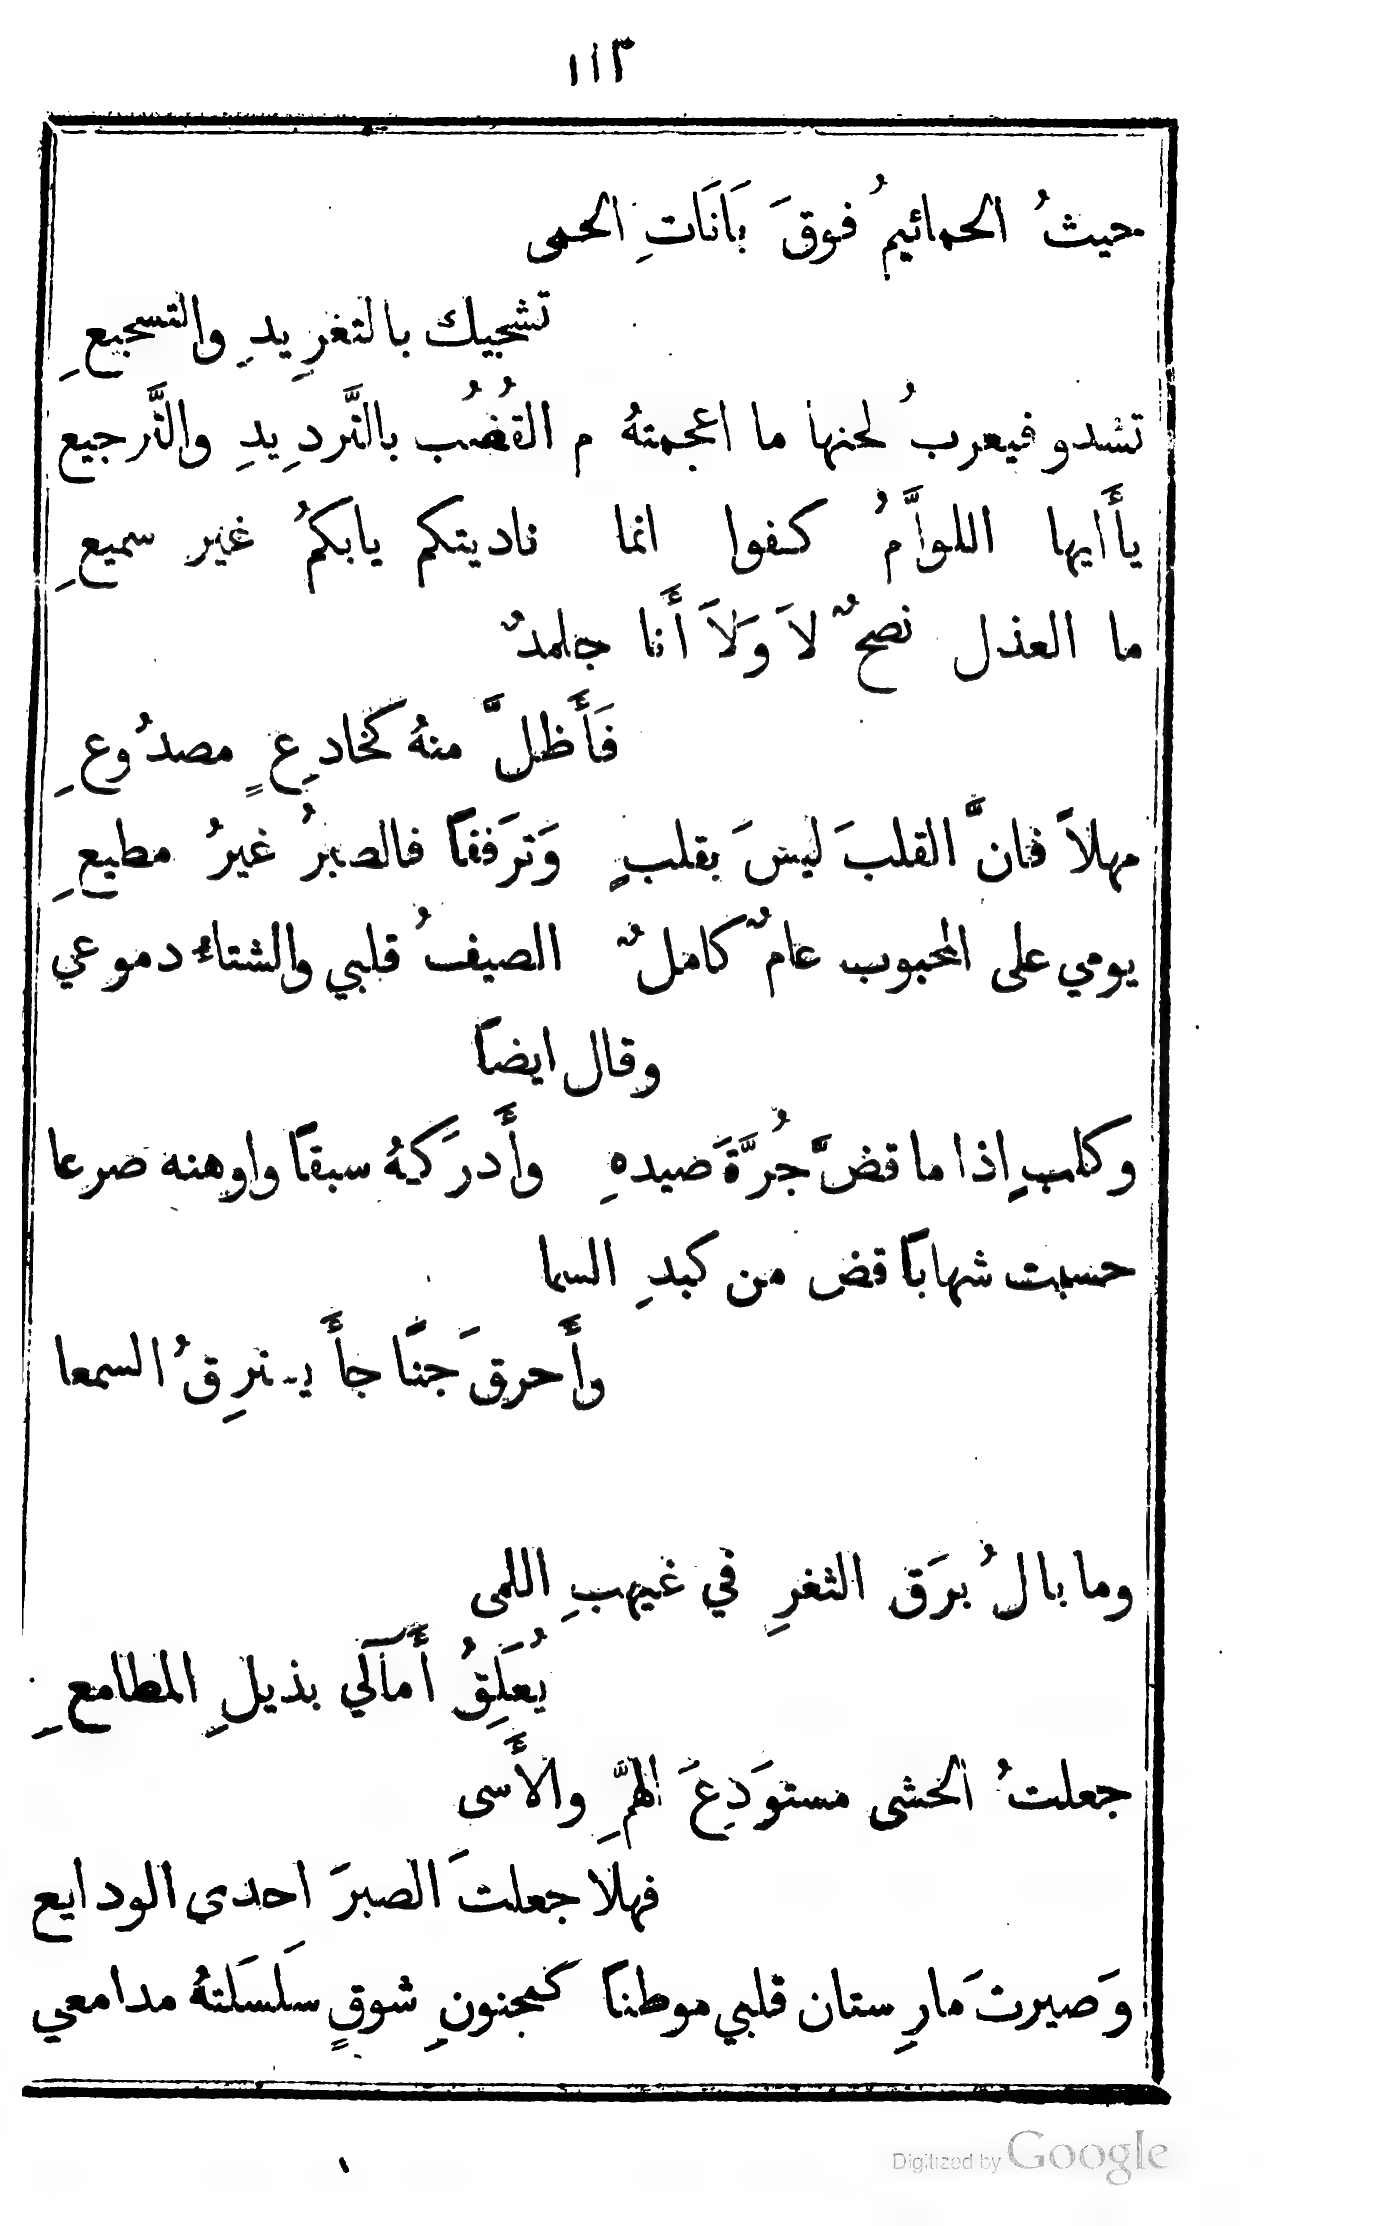 ١١٣
حيثُ الحمائيمُ فوقَ بَانَاتِ الحمى
تشجيك بالتغرِيدِ والتسجيعِ
تشدو فيعربُ لحنها ما اعجمتهُ م القُضُب بالتَّردِيدِ والتَّرجيع
يأَايها اللوَّامُ كفوا انما ناديتكم يابكمُ غير سميعِ
ما العذل نصحٌ لاَ وَلاَ أَنا جلمدٌ
فَأَظلَّ منهُ كخادِعٍ مصدُوعِ
مهلاً فانَّ القلبَ ليسَ بقلبٍ وَترَفقاً فالصبرُ غيرُ مطيعِ
يومي على المحبوب عامٌ كاملٌ الصيفُ قلبي والشتاءُ دموعي
وقال ايضاً
وكلبٍ اذا ما قضَّ جُرَّةَ صيدهِ وأَدرَكهُ سبقاً واوهنه صرعا
حسبت شهاباً قض من كبدِ السما
وأَحرقَ جنًا جأَ يـنرِقُ السمعا
وما بالُ برَق الثغرِ في غيهبِ اللمى
يُعَلِقُ أَمآلي بذيلِ المطامعِ
جعلتُ الحشى مستوَدِعَ الهمِّ والأَسى
فهلا جعلتَ الصبرَ احدي الودايع
وَصيرت مَارِستان قلبي موطناً كمجنونِ شوقٍ سَلسَلتهُ مدامعي
Digitized by Google